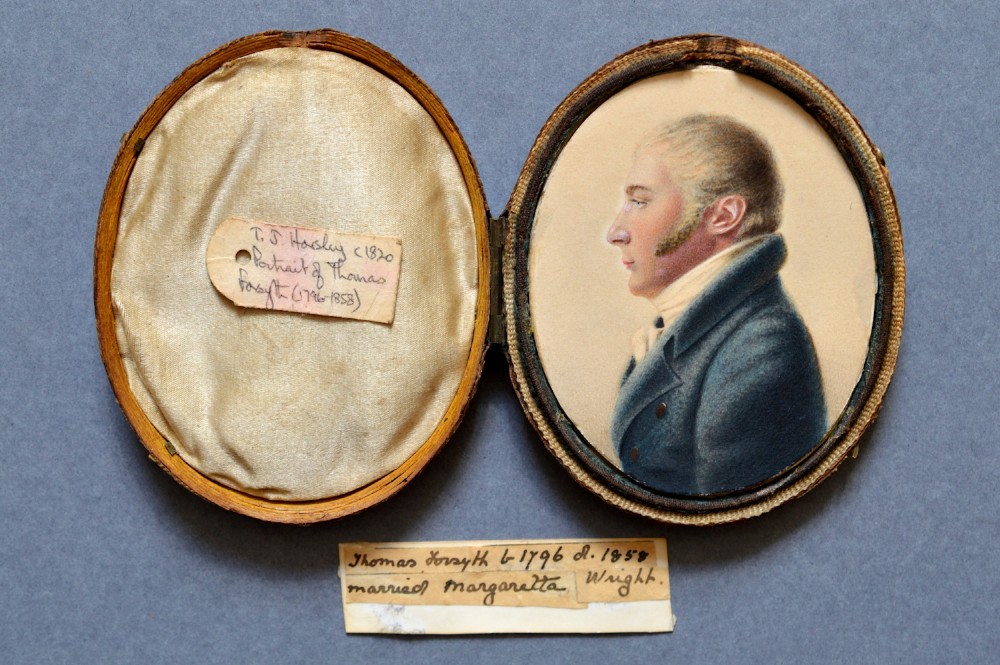 T. J. Horsley c1820
Portrait of Thomas
Forsyth (1796-1858)
Thomas Forsyth b 1796 d. 1858
married Margaretta Wright.